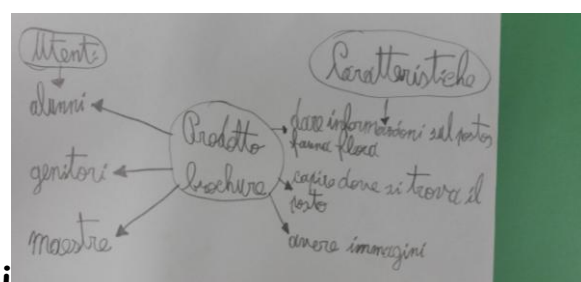 Utenti
alunni
genitori
maestre
Prodotto
brochure
Caratteristiche
dare informazioni sul posto
fauna flora
capire dove si trova il
posto
avere immagini
i